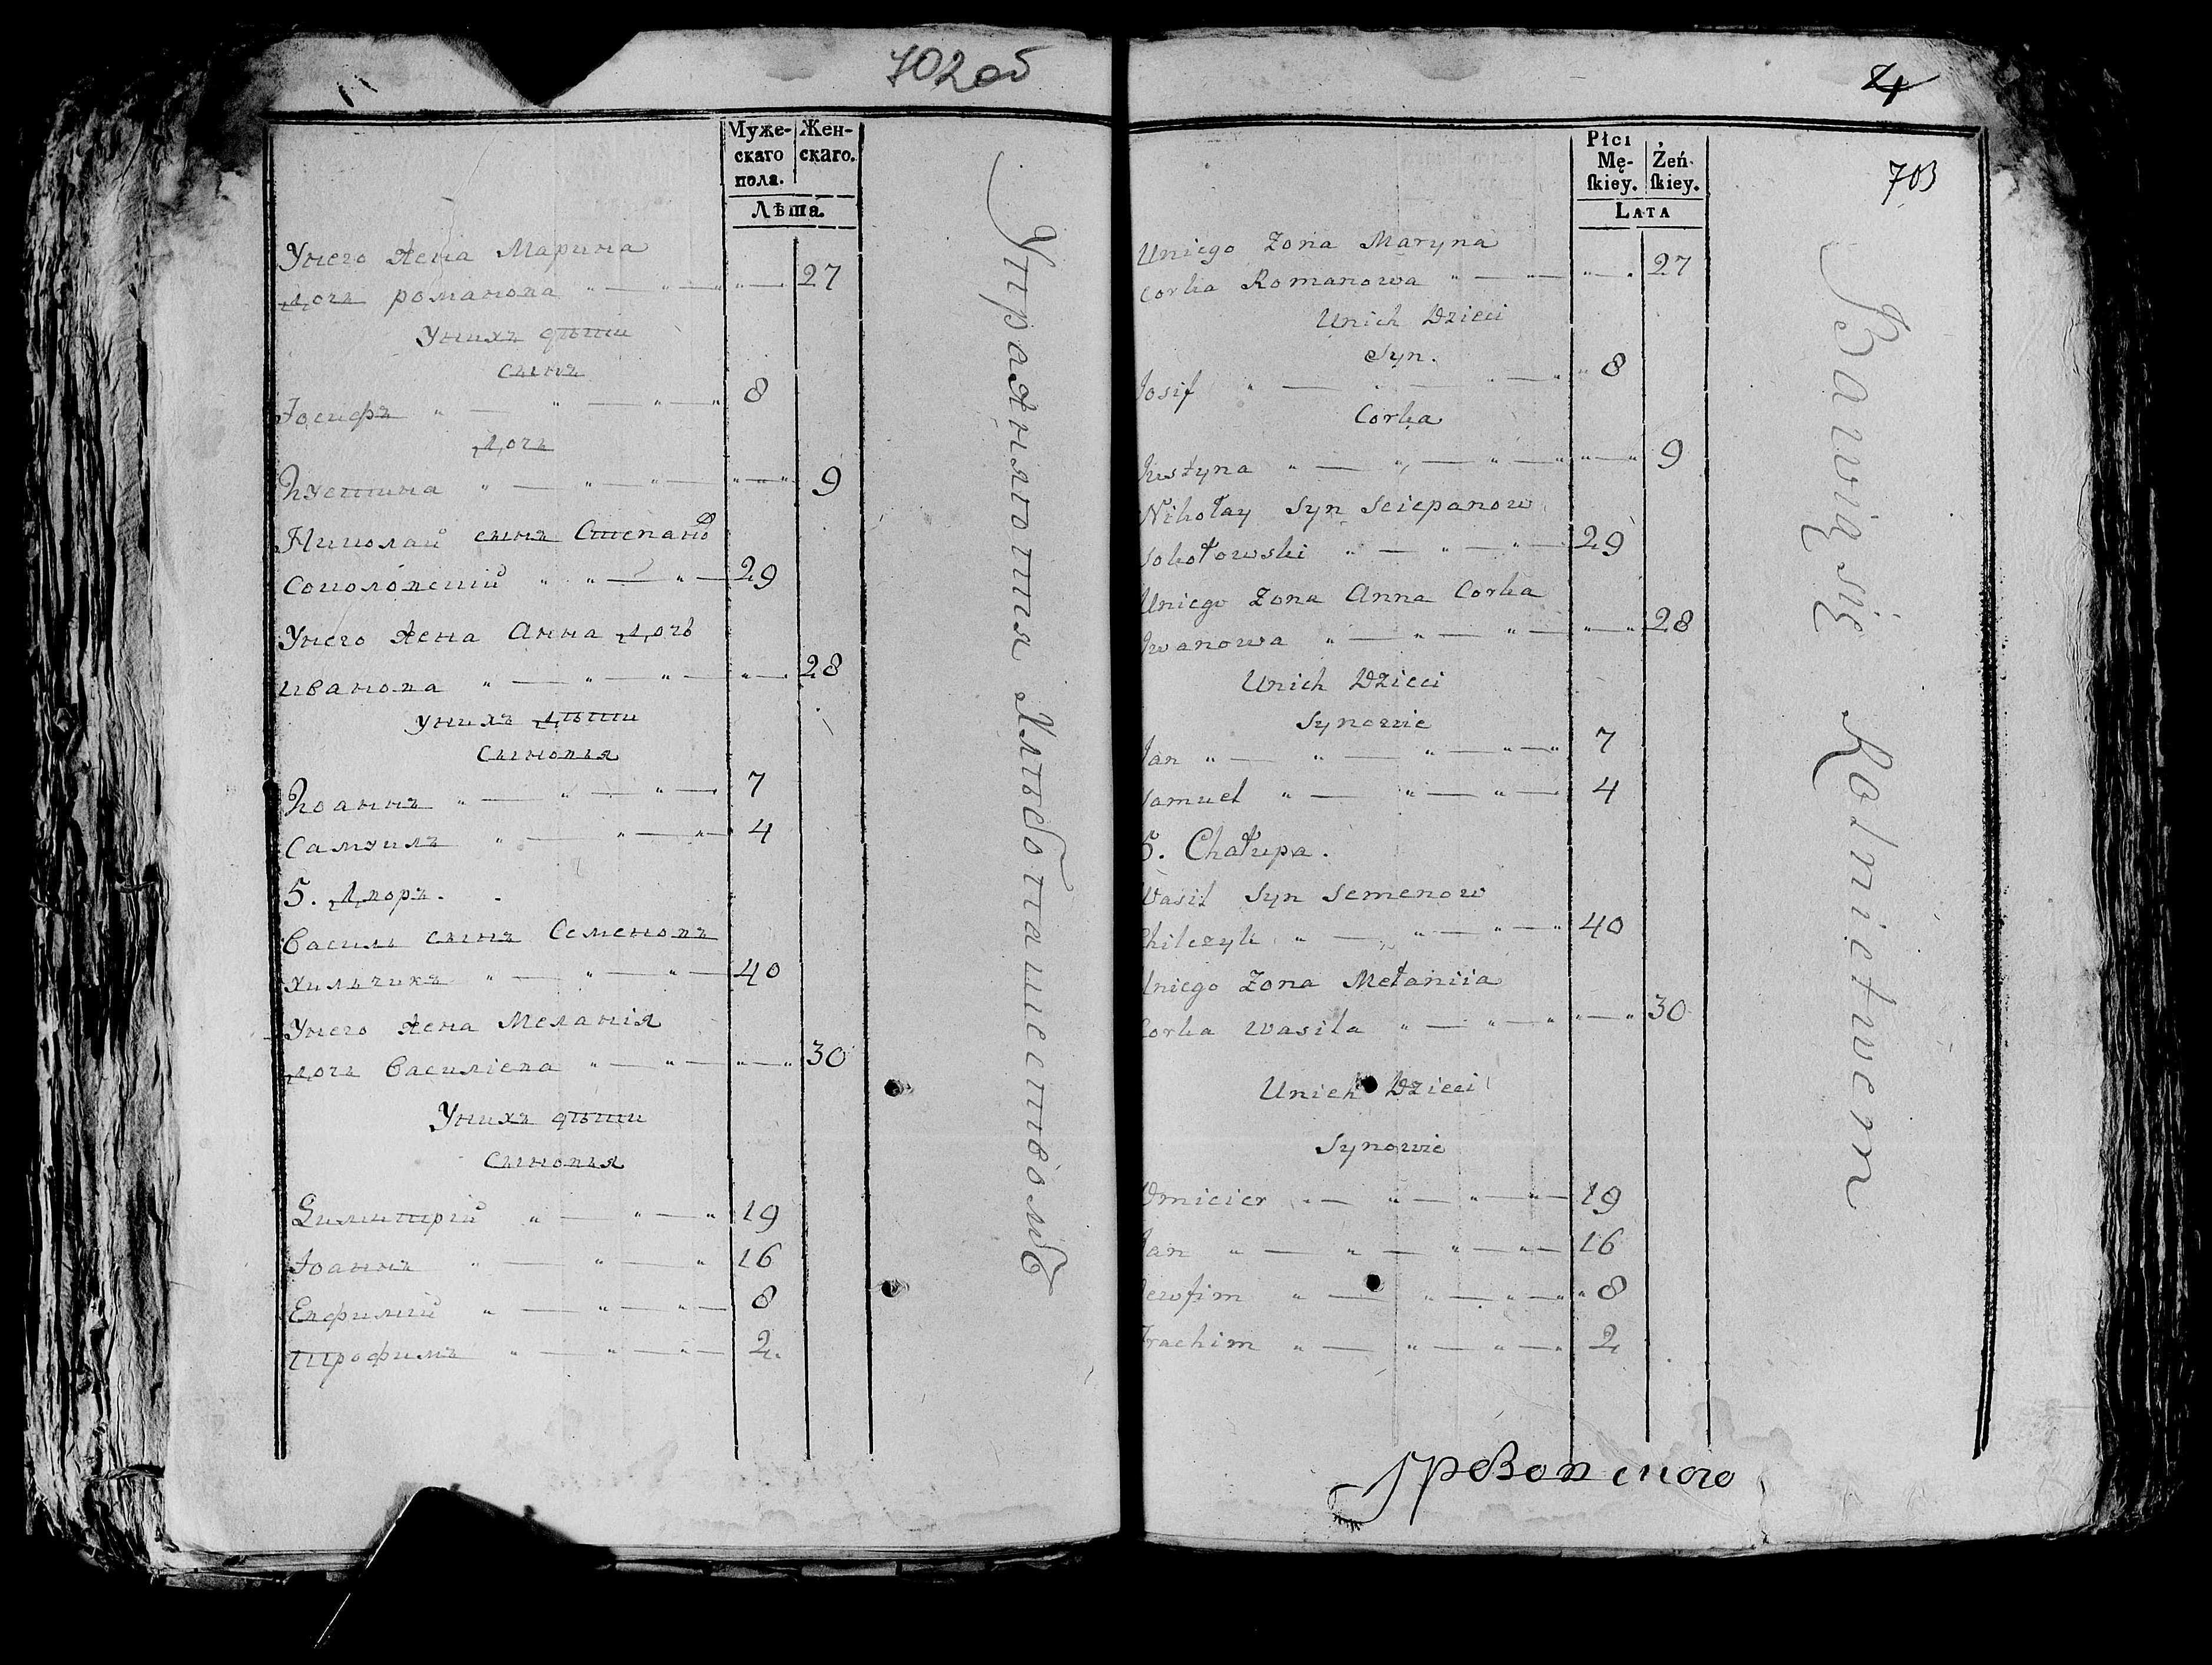 702 об
Муже-
скаго
пола.
Жен-
скаго.
Лѣта.
Унего жена Марина
дочь романова 27
Унихъ дѣти
сынъ
Іосифъ 8
дочь
Юстина 9
Николай сынъ Степанов
Соколовскій 29
Унего жена Анна дочь
иванова 28
унихъ дѣти
Сыновья
Иоаннъ 7
Самуилъ 4
5. Дворъ.
Василь сынъ Семеновъ
хильчикъ 40
Унего жена Меланія
дочь Василіева 30
Унихъ дѣти
Сыновья
Димитрій 19
Іоаннъ 16
Евфимий 8
Трофимъ 2.
Упражняются Хлѣбопашествомъ
4
703
Płci
Mę-
skiey.
Żeń-
skiey.
Lata
Uniego Zona Maryna
Corka Romanowa 27
Unich Dzieci
Syn.
Josif 8
Corka
Justyna 9
Nikołay Syn Sciepanow
Sokołowski 29
Uniego Zona Anna Corka
Jwanowa 28
Unich Dzieci
Synowie
Jan 7
Samuel 4
5. Chałupa.
Wasil Syn Semenow
Chilczyk 40
Uniego Zona Mełaniia
Corka Wasila 30
Unich Dzieci
Synowie
Dmicier 19
Jan 16
Jewfim 8
Trachim 2
Bawią się Rolnictwem